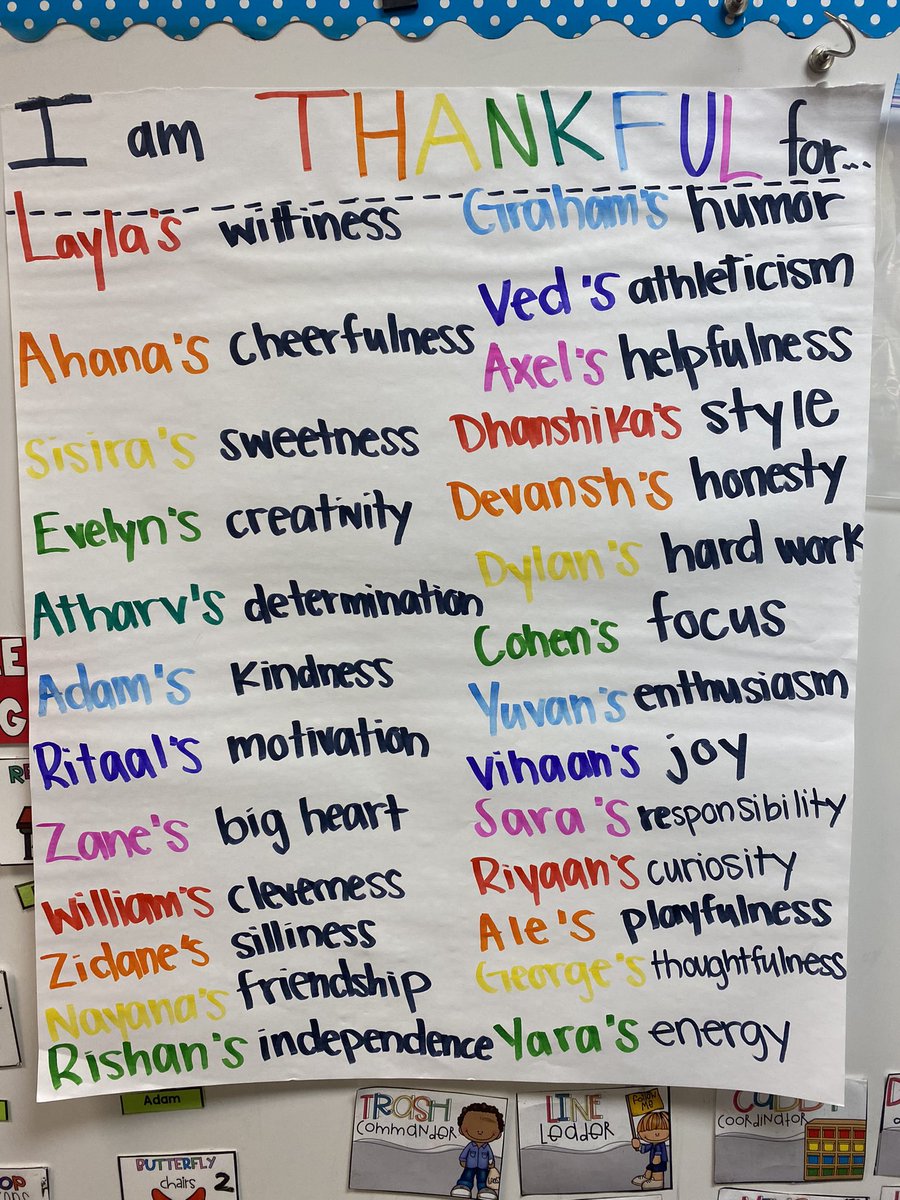 I am THANKFUL for...
Layla's wittiness
Ahana's cheerfulness
Sisira's sweetness
Evelyn's creativity
Atharv's determination
Adam's kindness
Ritaal's motivation
Zane's big heart
William's cleverness
Zidane's silliness
Nayana's friendship
Rishan's independence
Graham's humor
Ved's athleticism
Axel's helpfulness
Dhanshika's style
Devansh's honesty
Dylan's hard work
Cohen's focus
Yuvan's enthusiasm
Vihaan's joy
Sara's responsibility
Riyaan's curiosity
Ale's playfulness
George's thoughtfulness
Yara's energy
Adam
TRASH
COMMANDER
LINE
LEADER
FOLLOW
ME
CADDY
COORDINATOR
BUTTERFLY
chairs
2